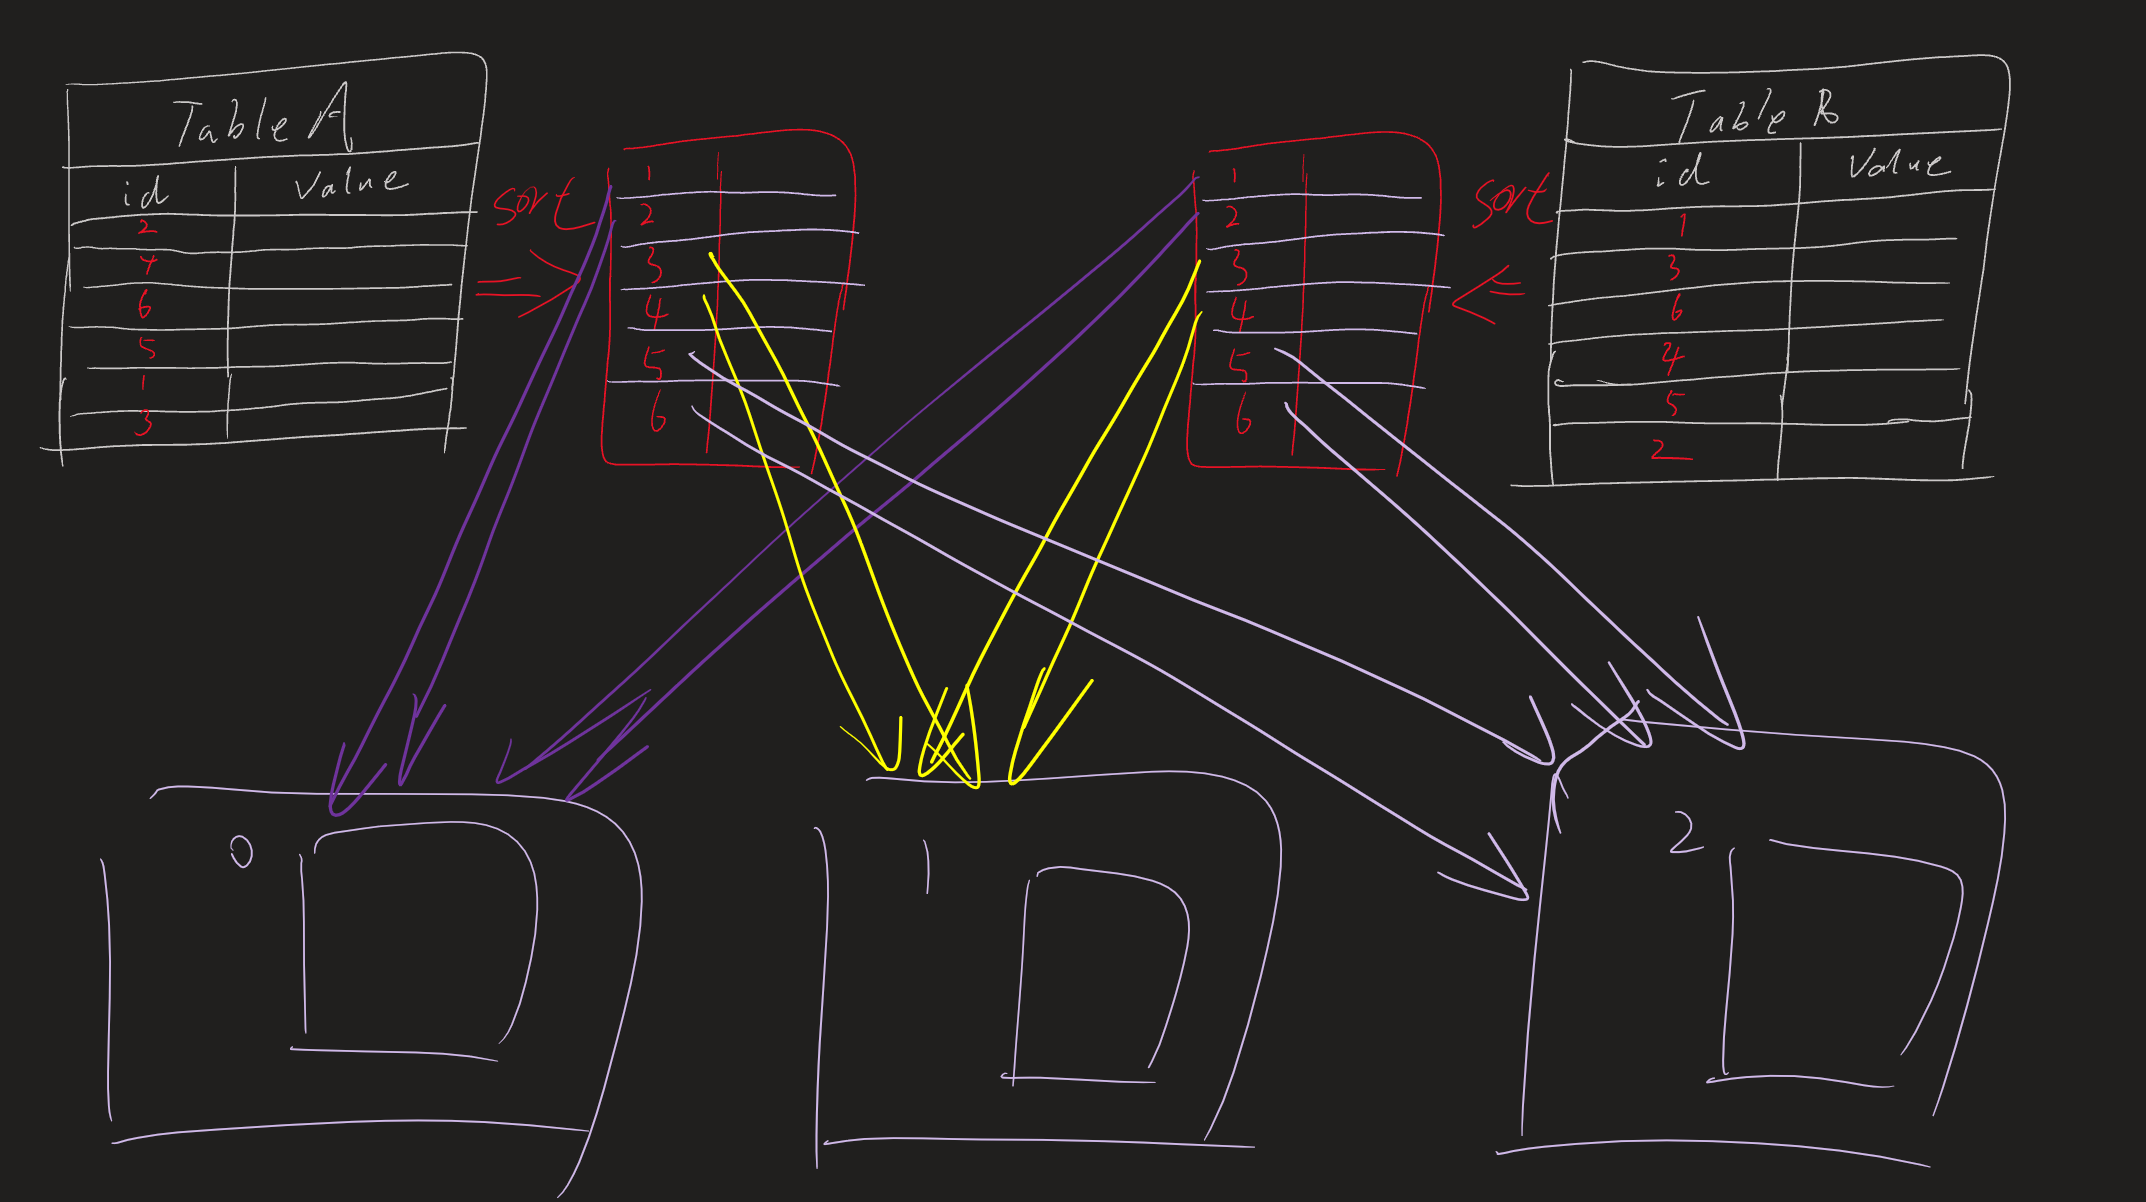 Table A
id Value
2
4
6
5
1
3
sort
1
2
3
4
5
6
1
2
3
4
5
6
sort
Table B
id Value
1
3
6
4
5
2
0
1
2